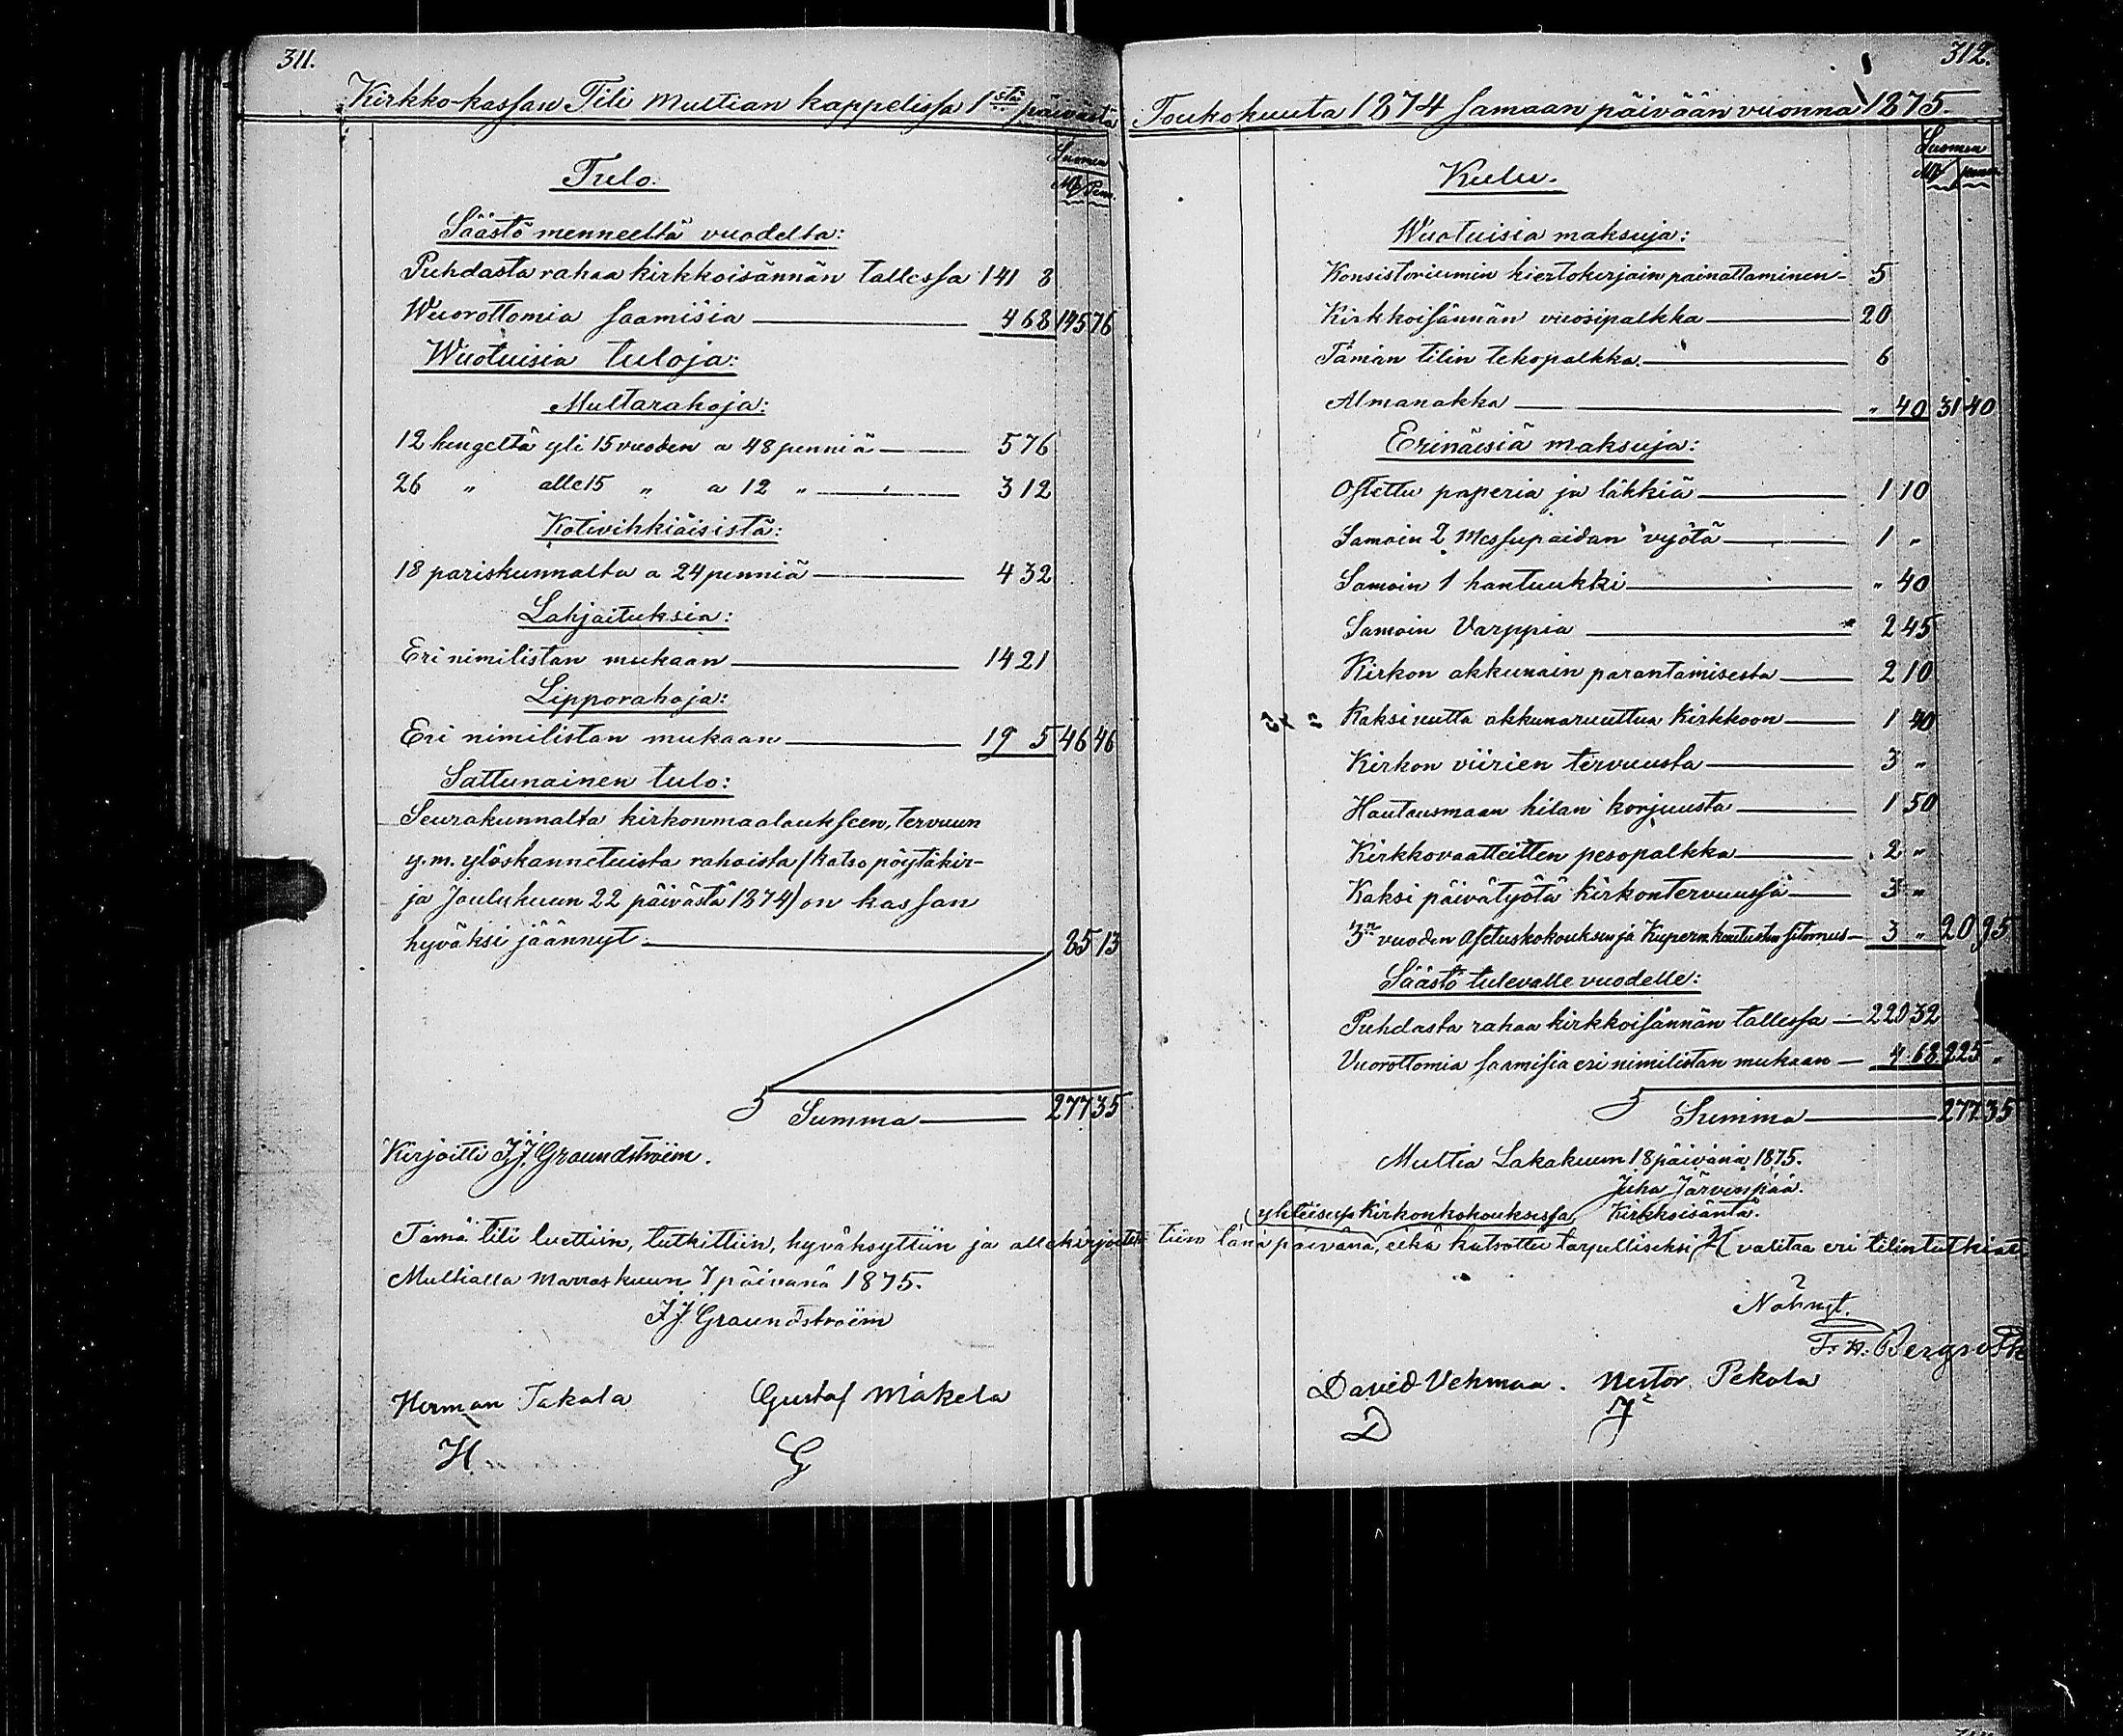 311.
Kirkko-kassan Tili Multian kappelissa 1stä päivästä
Suomen
Mk Penn.
Tulo.
Säästö menneeltä vuodelta:
Puhdasta rahaa kirkkoisännän tallessa 141 8
Wuorottomia saamisia 4 68 145 76
Wuotuisia tuloja:
Multarahoja:
12 hengeltä yli 15 vuoden a 48 penniä 5 76
26 " alle 15 " a 12 " 3 12
Kotivihkiäisistä:
18 pariskunnalta a 24 penniä 4 32
Lahjaituksia:
Eri nimilistan mukaan 14 21
Lipporahoja:
Eri nimilistan mukaan 19 5 46 46
Sattunainen tulo:
Seurakunnalta kirkonmaalaukseen, tervuun
y.m. ylöskannetuista rahoista (katso pöytäkir-
ja Joulukuun 22 päivästä 1874) on kassan
hyväksi jäännyt 85 13
Summa 277 35
Kirjoitti J.J. Graundströim.
Tämä tili luettiin, tutkittiin, hyväksyttiin ja allekirjoitet-
Multialla Marraskuun 7 päivänä 1875.
J.J. Graundströim
Herman Takala Gustaf Mäkela
H G
312.
Toukokuuta 1874 samaan päivään vuonna 1875.
Suomen
Mk penn.
Kulu.
Wuotuisia maksuja:
Konsistoriumin kiertokirjain painattaminen 5
Kirkkoisännän vuosipalkka 20
Tämän tilin tekopalkka. 6
Almanakka " 40 31 40
Erinäisiä maksuja:
Ostettu paperia ja läkkiä 1 10
Samoin 2 Messupaidan vyötä 1 "
Samoin 1 hantuukki " 40
Samoin Varppia 2 45
Kirkon akkunain parantamisesta 2 10
Kaksi uutta akkunaruuttua Kirkkoon 1 40
Kirkon viirien tervuusta 3 "
Hautausmaan hilan korjuusta 1 50
Kirkkovaatteitten pesopalkka 2 "
Kaksi päivätyötä kirkontervuussa 3 "
3n vuoden Asetuskokouksen ja sitomus 3 " 20 95
Säästö tulevalle vuodelle:
Puhdasta rahaa kirkkoisännän tallessa 220 32
Vuorottomia saamisia eri nimilistan mukaan 4 68 225 "
Summa 277 35
Multia Lokakuun 18 päivänä 1875.
Juha Järvenpää.
Kirkkoisäntä.
yhteisessä Kirkonkokouksessa
tiin tänä päivänä, eikä katsottu tarpelliseksi valitaa eri tilintutkiat
Nähnyt.
F. W. Bergroth
David Vehmaa. Nestor Pekola
D